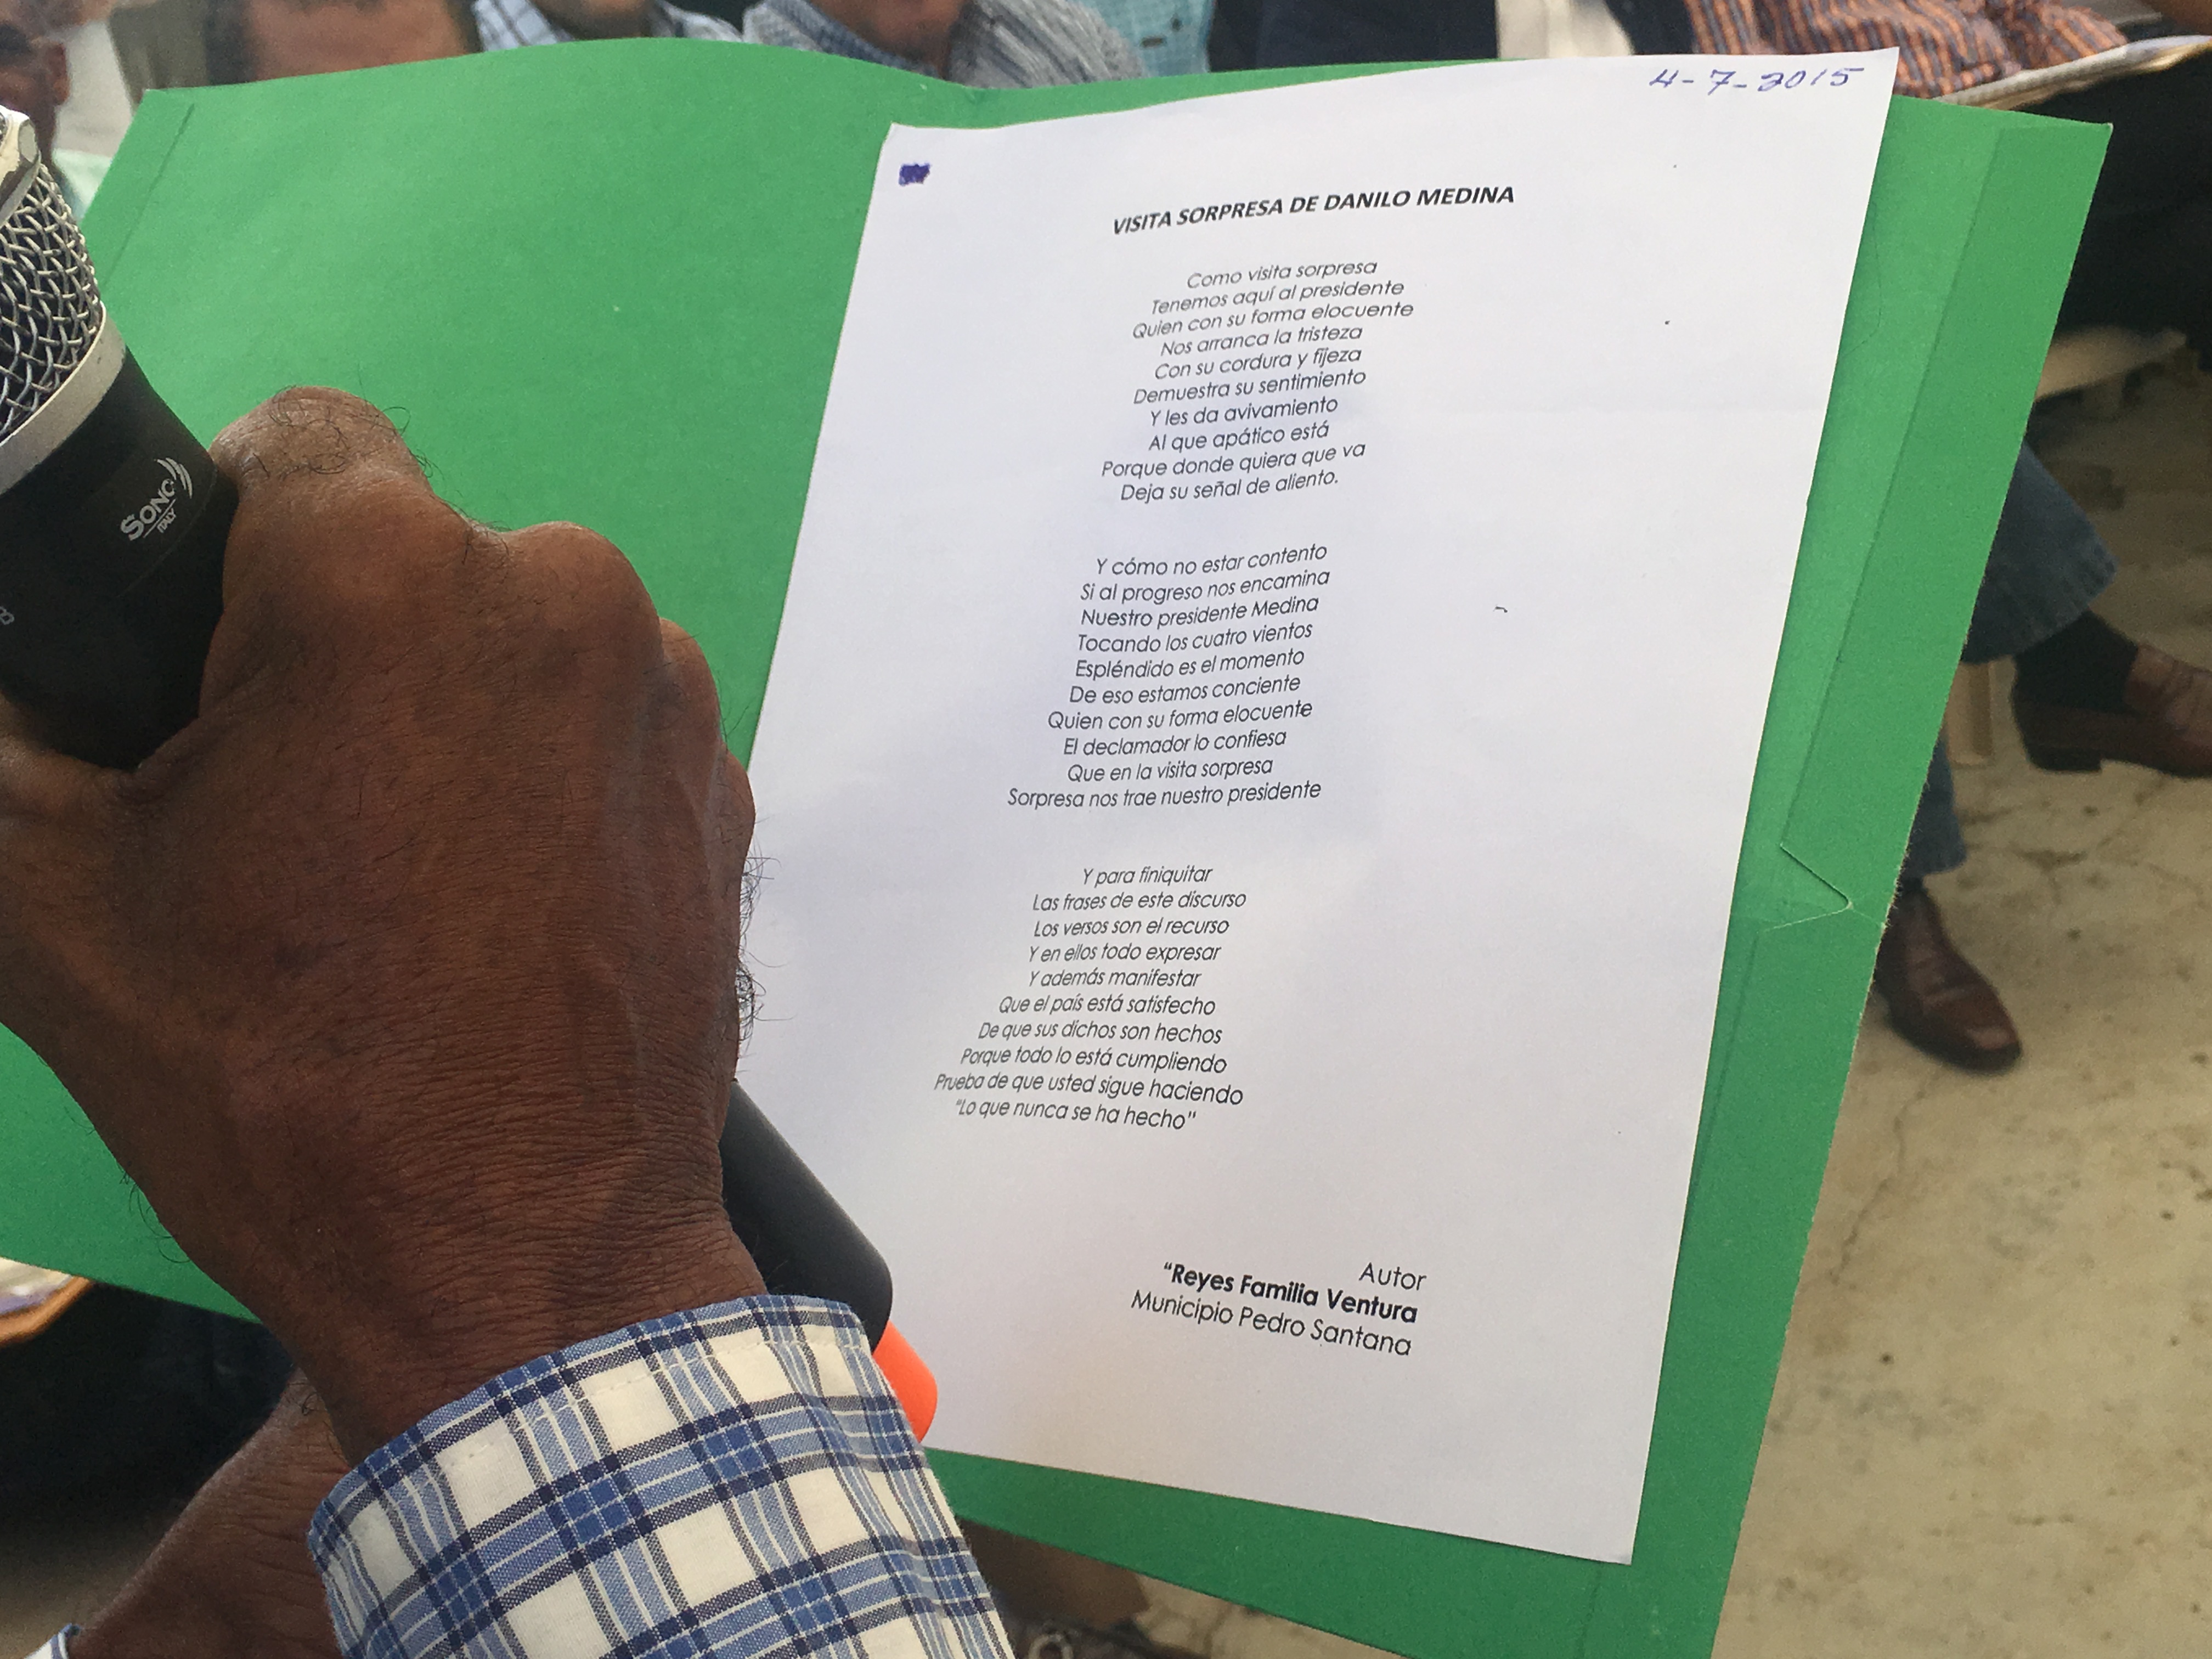 4-7-2015
VISITA SORPRESA DE DANILO MEDINA
Como visita sorpresa
Tenemos aquí al presidente
Quien con su forma elocuente
Nos arranca la tristeza
Con su cordura y fijeza
Demuestra su sentimiento
Y les da avivamiento
Al que apático está
Porque donde quiera que va
Deja su señal de aliento.
Y cómo no estar contento
Si al progreso nos encamina
Nuestro presidente Medina
Tocando los cuatro vientos
Espléndido es el momento
De eso estamos conciente
Quien con su forma elocuente
El declamador lo confiesa
Que en la visita sorpresa
Sorpresa nos trae nuestro presidente
Y para finiquitar
Las frases de este discurso
Los versos son el recurso
Y en ellos todo expresar
Y además manifestar
Que el país está satisfecho
De que sus dichos son hechos
Porque todo lo está cumpliendo
Prueba de que usted sigue haciendo
"Lo que nunca se ha hecho"
Autor
"Reyes Familia Ventura
Municipio Pedro Santana
ITALY